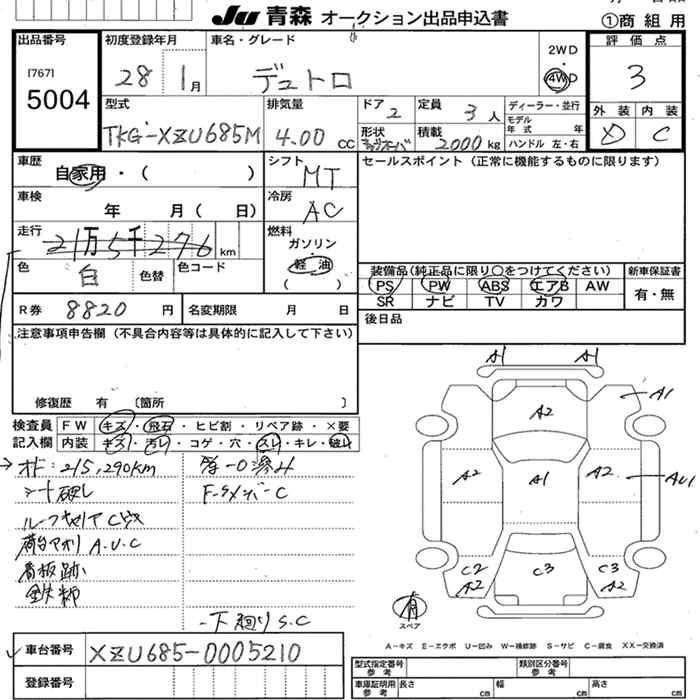 JU 青森 オークション出品申込書
①商組用
出品番号
[767]
5004
初度登録年月
28 1月
車名・グレード
デュトロ
2WD
4WD
評価点
3
外装 内装
D C
型式
TKG-XZU685M
排気量
4.00 CC
ドア 2
定員 3人
ディーラー・並行
モデル年式 年
ハンドル 左・右
形状
積載 2000kg
車歴
自家用・( )
シフト
MT
セールスポイント(正常に機能するものに限ります)
車検
年 月( 日)
冷房
AC
走行
21万5千276 km
燃料
ガソリン
軽油
( )
色
白
色替
色コード
装備品(純正品に限り○をつけてください)
新車保証書
PS PW ABS エアB AW
有・無
SR ナビ TV カワ
R券 8820 円
名変期限 月 日
後日品
注意事項申告欄(不具合内容等は具体的に記入して下さい)
修復歴 有 〔箇所 〕
検査員記入欄
FW キズ・飛石・ヒビ割・リペア跡・×要
内装 キズ・汚レ・コゲ・穴・スレ・キレ・破レ
215,290km
シート破し
A.U.C
看板跡
下廻りS.C
A1 A1
A1
A2
A2 A1 A2
AU1
C2
A2
C3
C3
A2
有
スペア
A-キズ E-エクボ U-凹み W-補修跡 S-サビ C-腐食 XX-交換済
車台番号
XZU685-0005210
登録番号
型式指定番号
参考
類別区分番号
参考
車庫証明用
参考
長さ cm 幅 cm 高さ cm